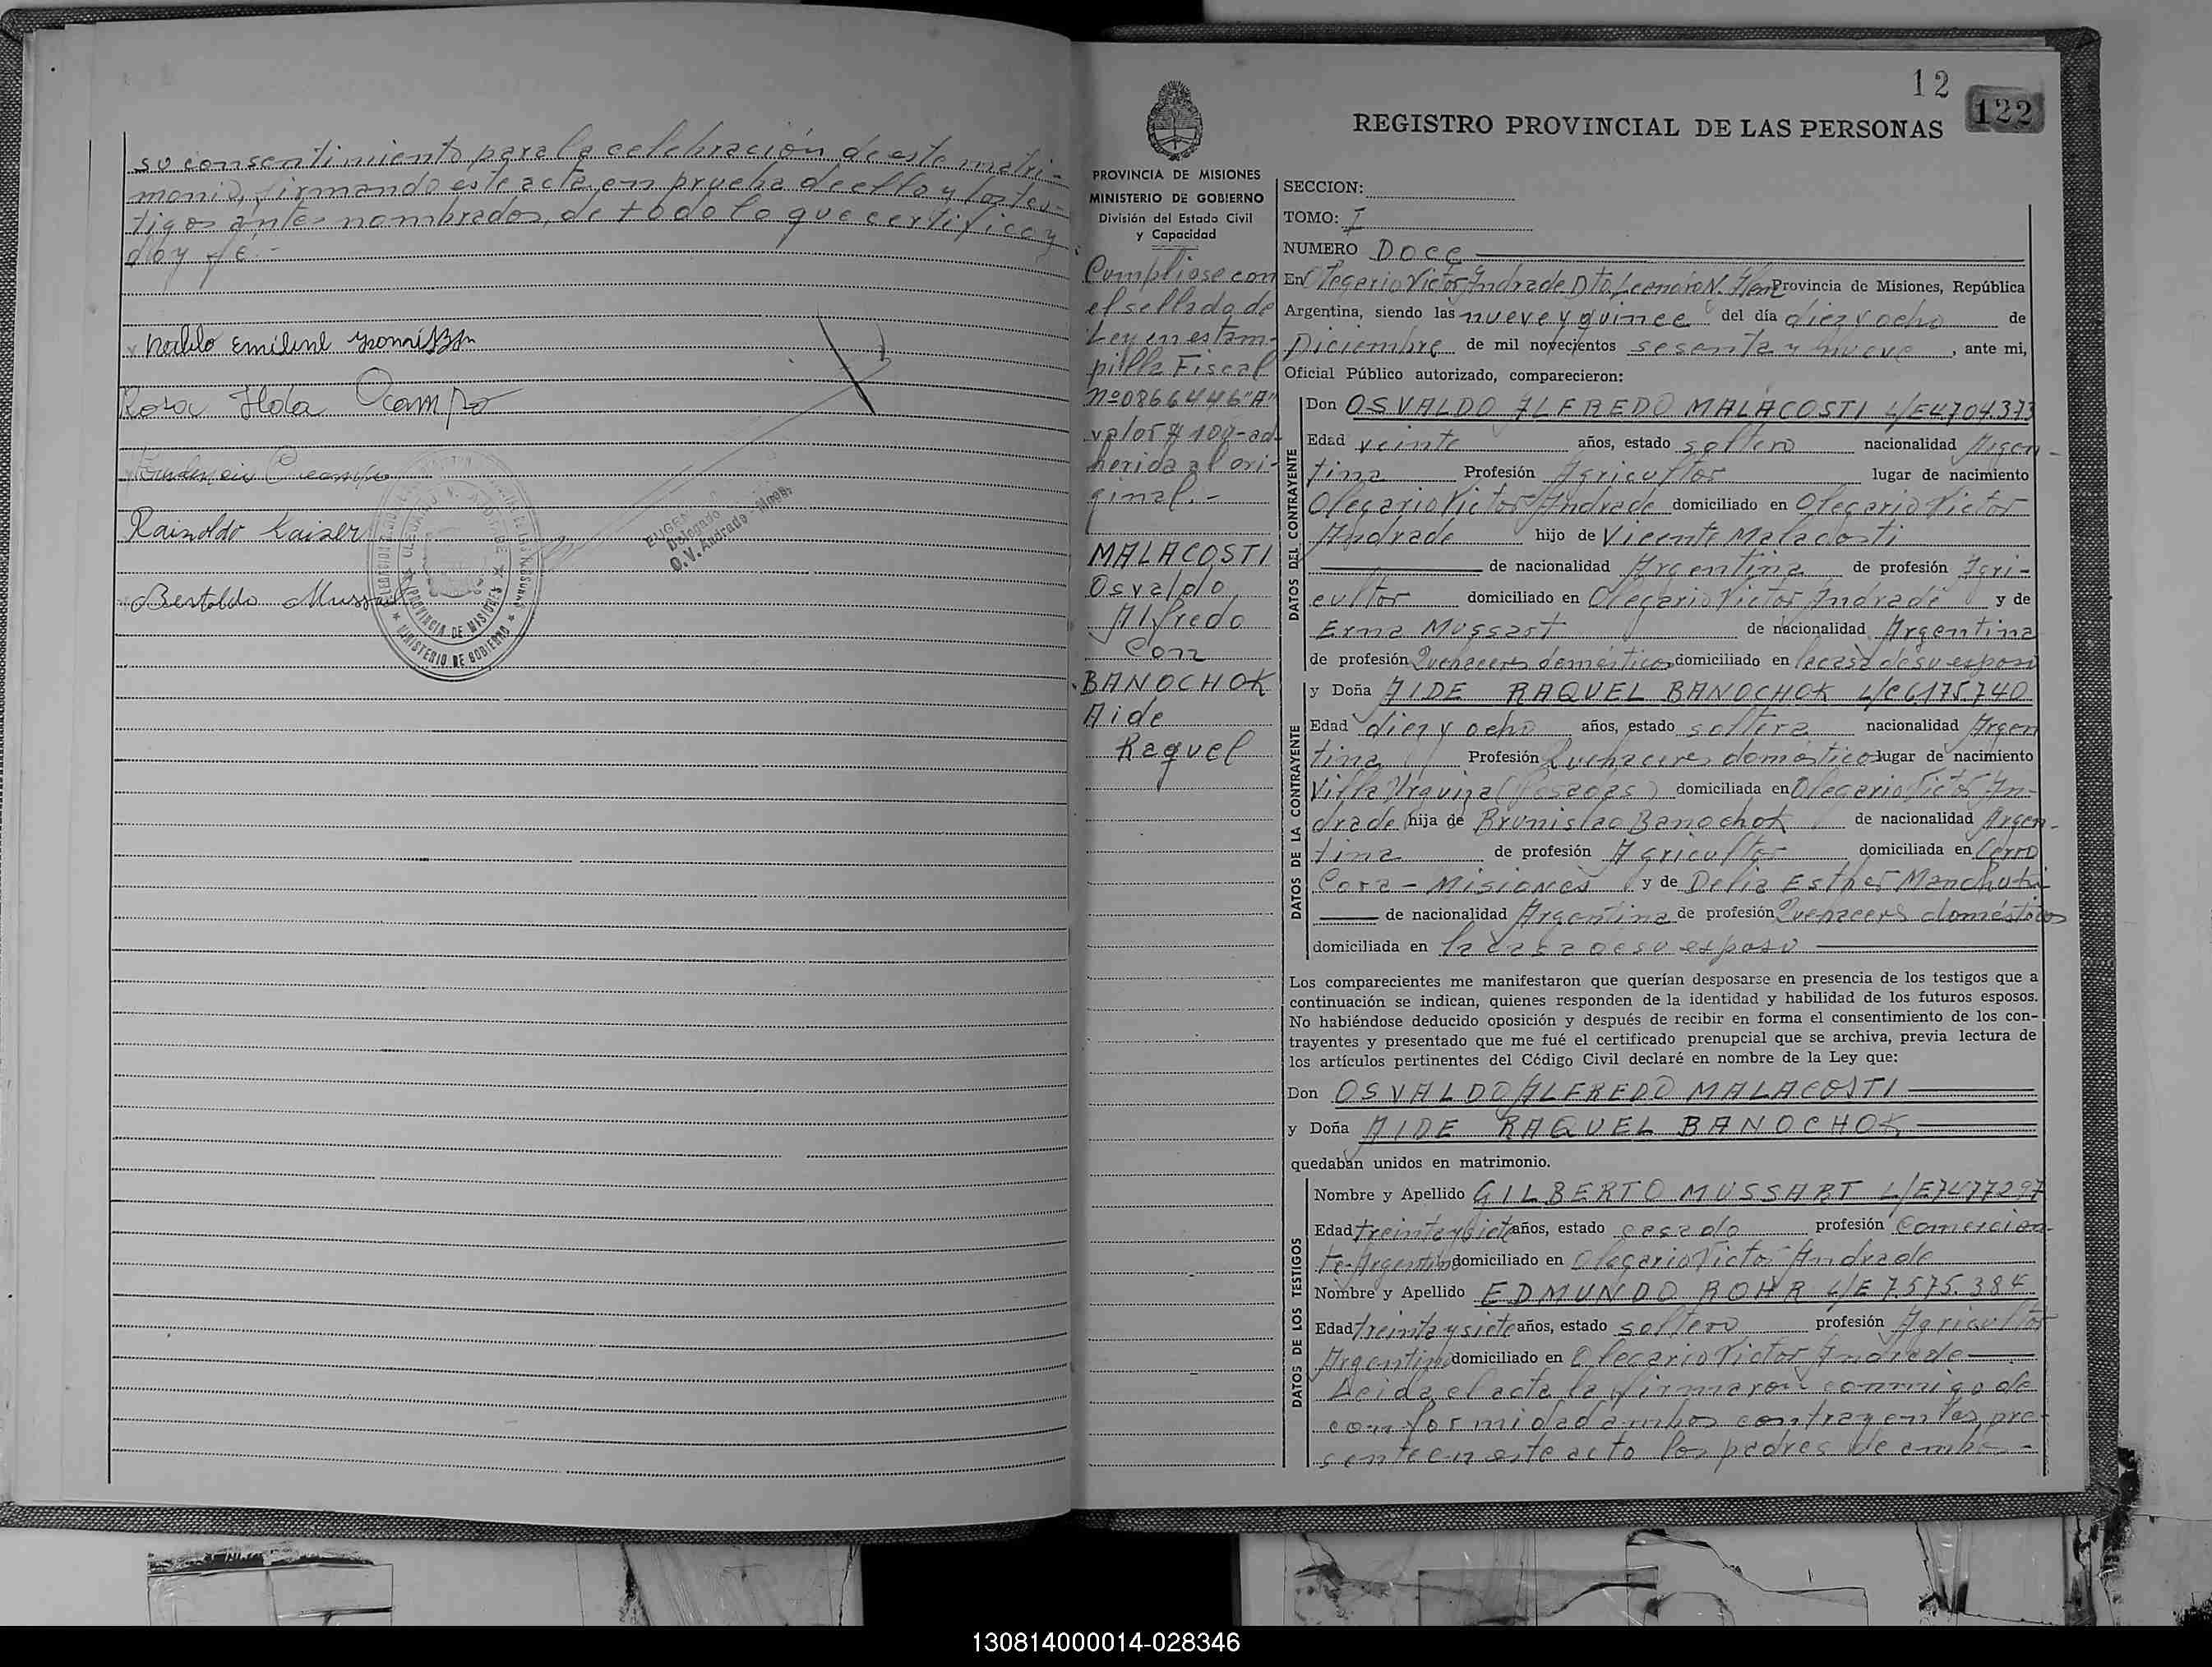 su consentimiento para la celebración de este matri-
monio, firmando este acta en prueba de ello y los tes-
tigos antes nombrados, de todo lo que certifico y
doy fé.-
Rosa Ilda Ocampo
Rainoldo Kaiser
Bertoldo
PROVINCIA DE MISIONES
MINISTERIO DE GOBIERNO
Delegado
O.V. Andrade - Mnes.
12
122
REGISTRO PROVINCIAL DE LAS PERSONAS
PROVINCIA DE MISIONES
MINISTERIO DE GOBIERNO
División del Estado Civil
y Capacidad
Cumpliose con
el sellado de
Ley en estam-
pilla Fiscal
Nº 0866446 "A"
valor $ 100-ad-
herida al ori-
ginal.-
MALACOSTI
Osvaldo
Alfredo
Con
BANOCHOK
Aide
Raquel
SECCION:
TOMO: I
NUMERO Doce
En Olegario Victor Andrade Dto. Leandro N. Alem Provincia de Misiones, República
Argentina, siendo las nueve y quince del día diez y ocho de
Diciembre de mil novecientos sesenta y nueve, ante mi,
Oficial Público autorizado, comparecieron:
DATOS DEL CONTRAYENTE
Don OSVALDO ALFREDO MALACOSTI L/E 4.704.373
Edad veinte años, estado soltero nacionalidad Argen-
tina Profesión Agricultor lugar de nacimiento
Olegario Victor Andrade domiciliado en Olegario Victor
Andrade hijo de Vicente Malacosti
de nacionalidad Argentina de profesión Agri-
cultor domiciliado en Olegario Victor Andrade y de
Erma Mussart de nacionalidad Argentina
de profesión Quehaceres domésticos domiciliado en la casa de su esposo
DATOS DE LA CONTRAYENTE
y Doña AIDE RAQUEL BANOCHOK L/C 6.175.740
Edad diez y ocho años, estado soltera nacionalidad Argen
tina Profesión Quehaceres domésticos lugar de nacimiento
Villa Urquiza (Posadas) domiciliada en Olegario Victor An-
drade hija de Brunislao Banochok de nacionalidad Argen-
tina de profesión Agricultor domiciliada en Cerro
Cora - Misiones y de Delia Esther Manchuki
de nacionalidad Argentina de profesión Quehaceres domésticos
domiciliada en la casa de su esposo
Los comparecientes me manifestaron que querían desposarse en presencia de los testigos que a
continuación se indican, quienes responden de la identidad y habilidad de los futuros esposos.
No habiéndose deducido oposición y después de recibir en forma el consentimiento de los con-
trayentes y presentado que me fué el certificado prenupcial que se archiva, previa lectura de
los artículos pertinentes del Código Civil declaré en nombre de la Ley que:
Don OSVALDO ALFREDO MALACOSTI
y Doña AIDE RAQUEL BANOCHOK
quedaban unidos en matrimonio.
DATOS DE LOS TESTIGOS
Nombre y Apellido GILBERTO MUSSART L/E 7477297
Edad treinta y siete años, estado casado profesión Comercian-
te-Argentino domiciliado en Olegario Victor Andrade
Nombre y Apellido EDMUNDO ROHR L/E 7.575.384
Edad treinta y siete años, estado soltero profesión Agricultor
Argentino domiciliado en Olegario Victor Andrade
Leida el acta la firmaron conmigo de
conformidad ambos contrayentes, pre-
sente en este acto los padres de ambos-
130814000014-028346